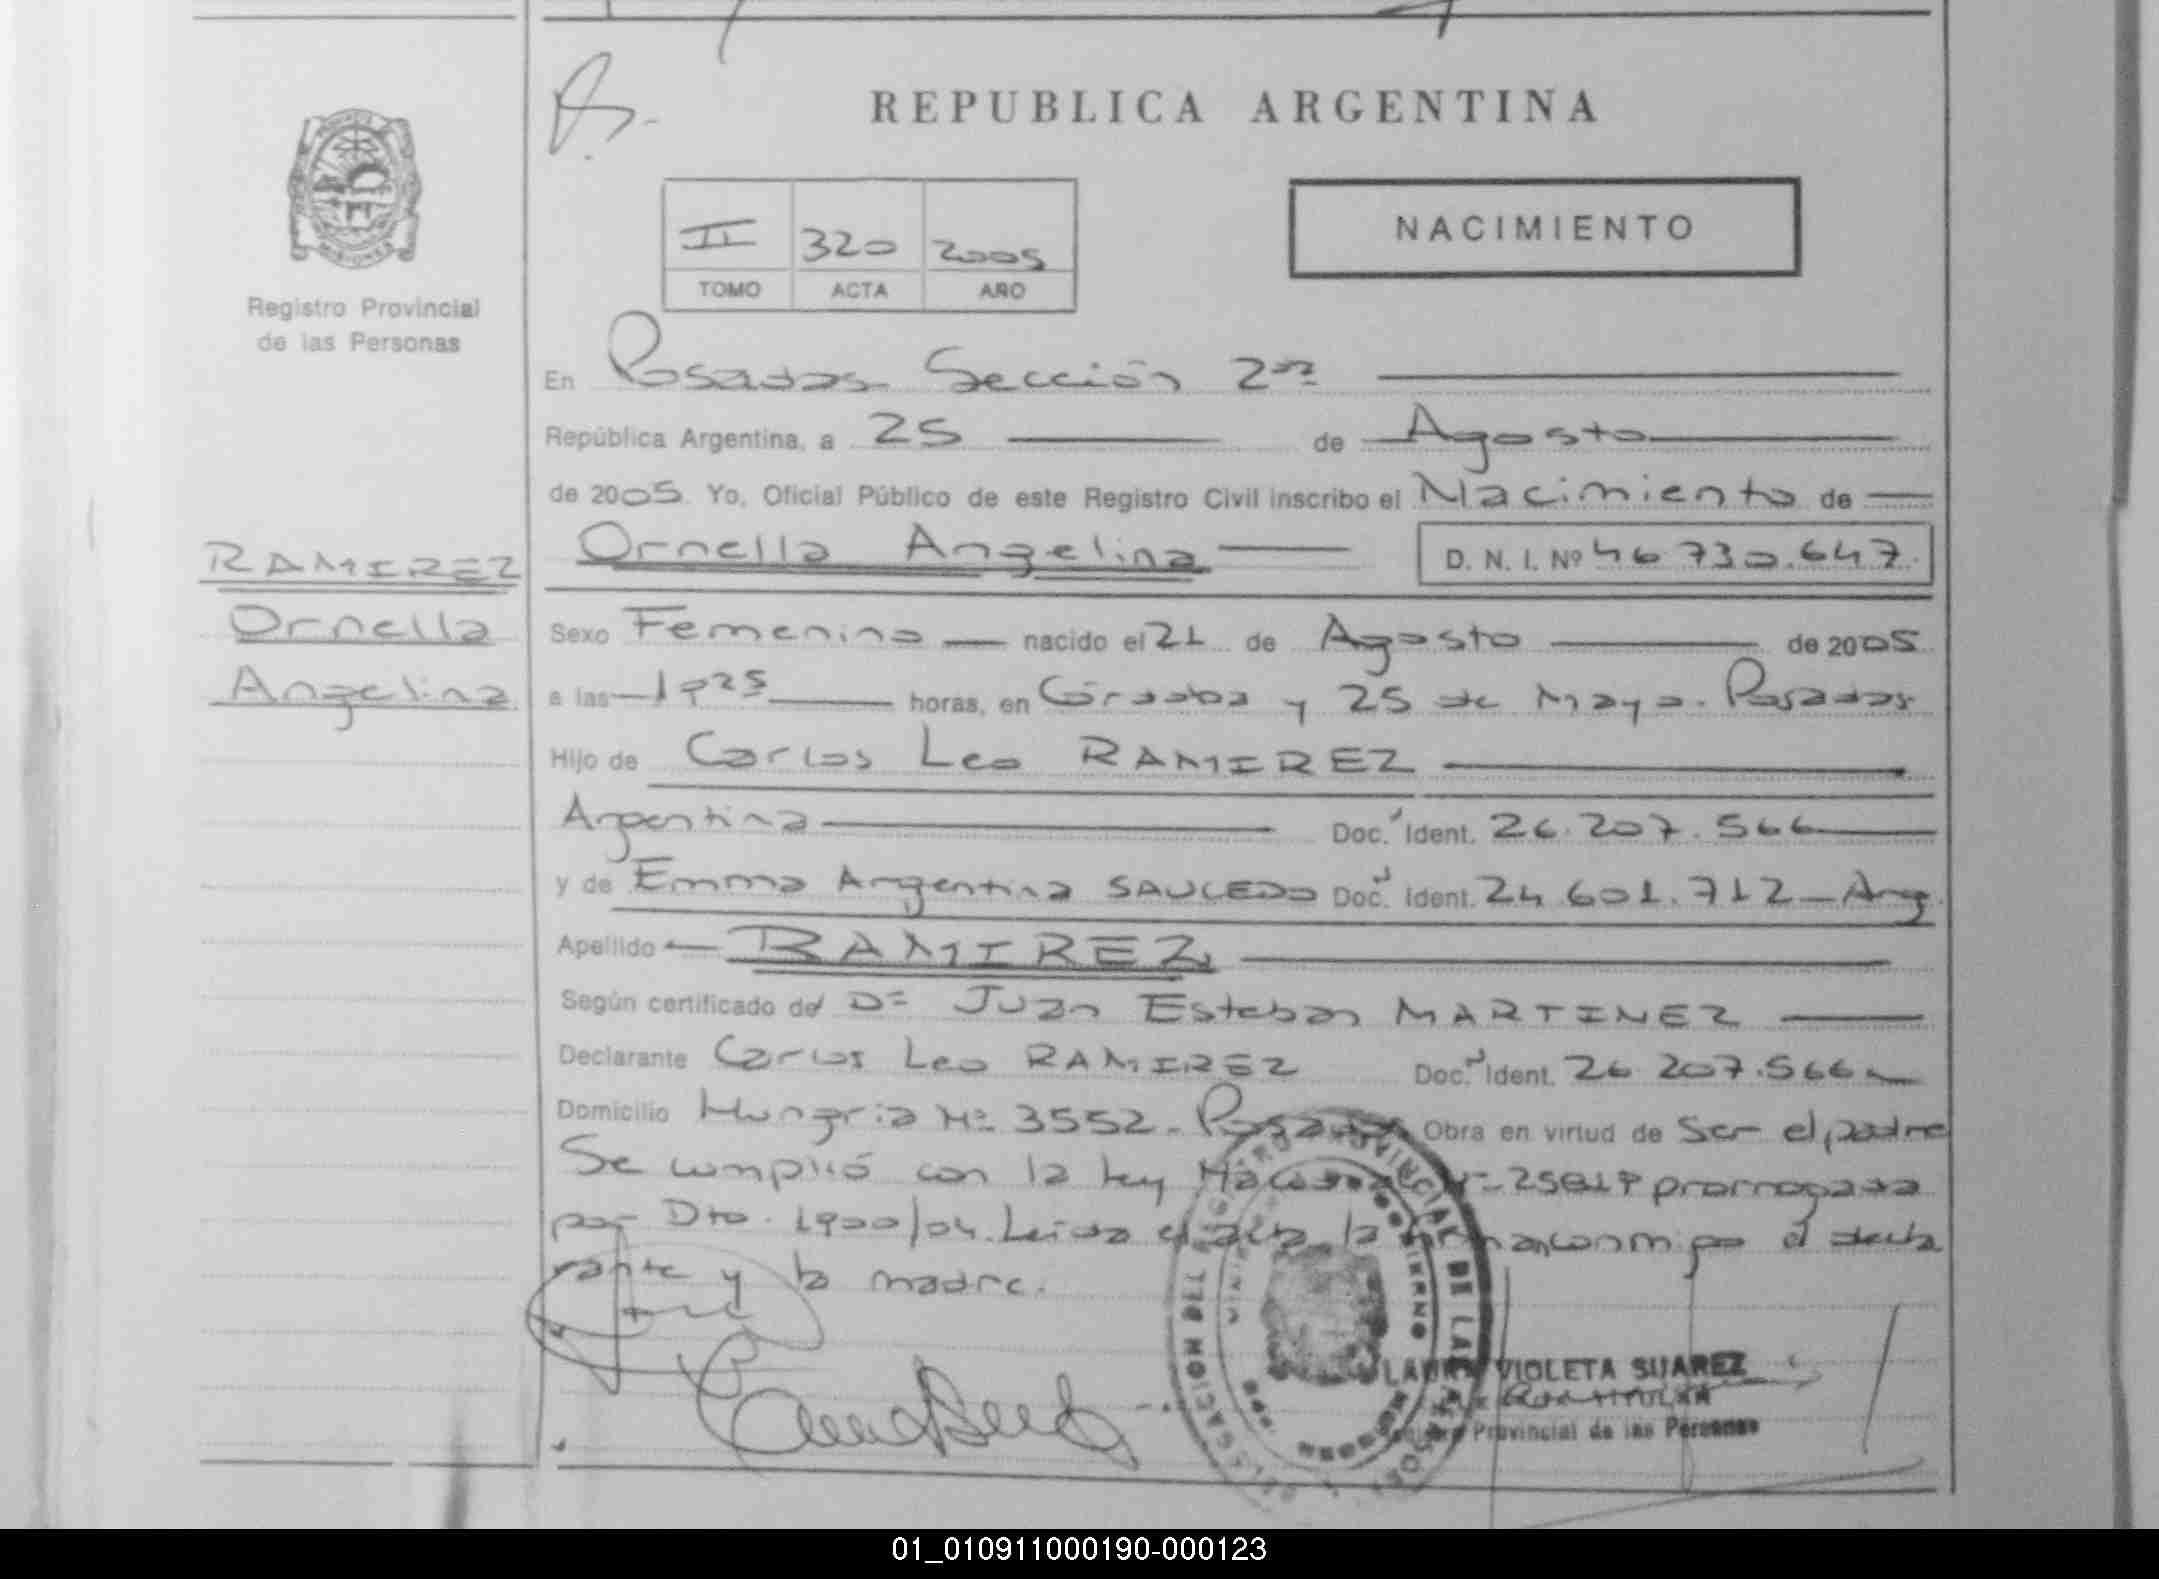 REPUBLICA ARGENTINA
NACIMIENTO
II 320 2005
TOMO ACTA AÑO
Registro Provincial
de las Personas
En Posadas Sección 2da
República Argentina, a 25 de Agosto
de 2005. Yo, Oficial Público de este Registro Civil inscribo el Nacimiento de
RAMIREZ
Ornella
Angelina
Ornella Angelina D. N. I. Nº 46 730.647.
Sexo Femenino nacido el 21 de Agosto de 2005
a las 1925 horas, en Córdoba y 25 de Mayo. Posadas
Hijo de Carlos Leo RAMIREZ
Argentina Doc. Ident. 26.207.566
y de Emma Argentina SAUCEDO Doc. Ident. 24.601.712 - Arg.
Apellido RAMIREZ
Según certificado de Dr Juan Esteban MARTINEZ
Declarante Carlos Leo RAMIREZ Doc. Ident. 26 207.566
Domicilio Hungria Nº 3552 - Posadas Obra en virtud de Ser el padre
Se cumplió con la ley Nacional Nº 25819 prorrogada
por Dto. 1900/04. Leida el acta la firman conmigo el decla
rante y la madre.
LAURA VIOLETA SUAREZ
Provincial de las Personas
01_010911000190-000123